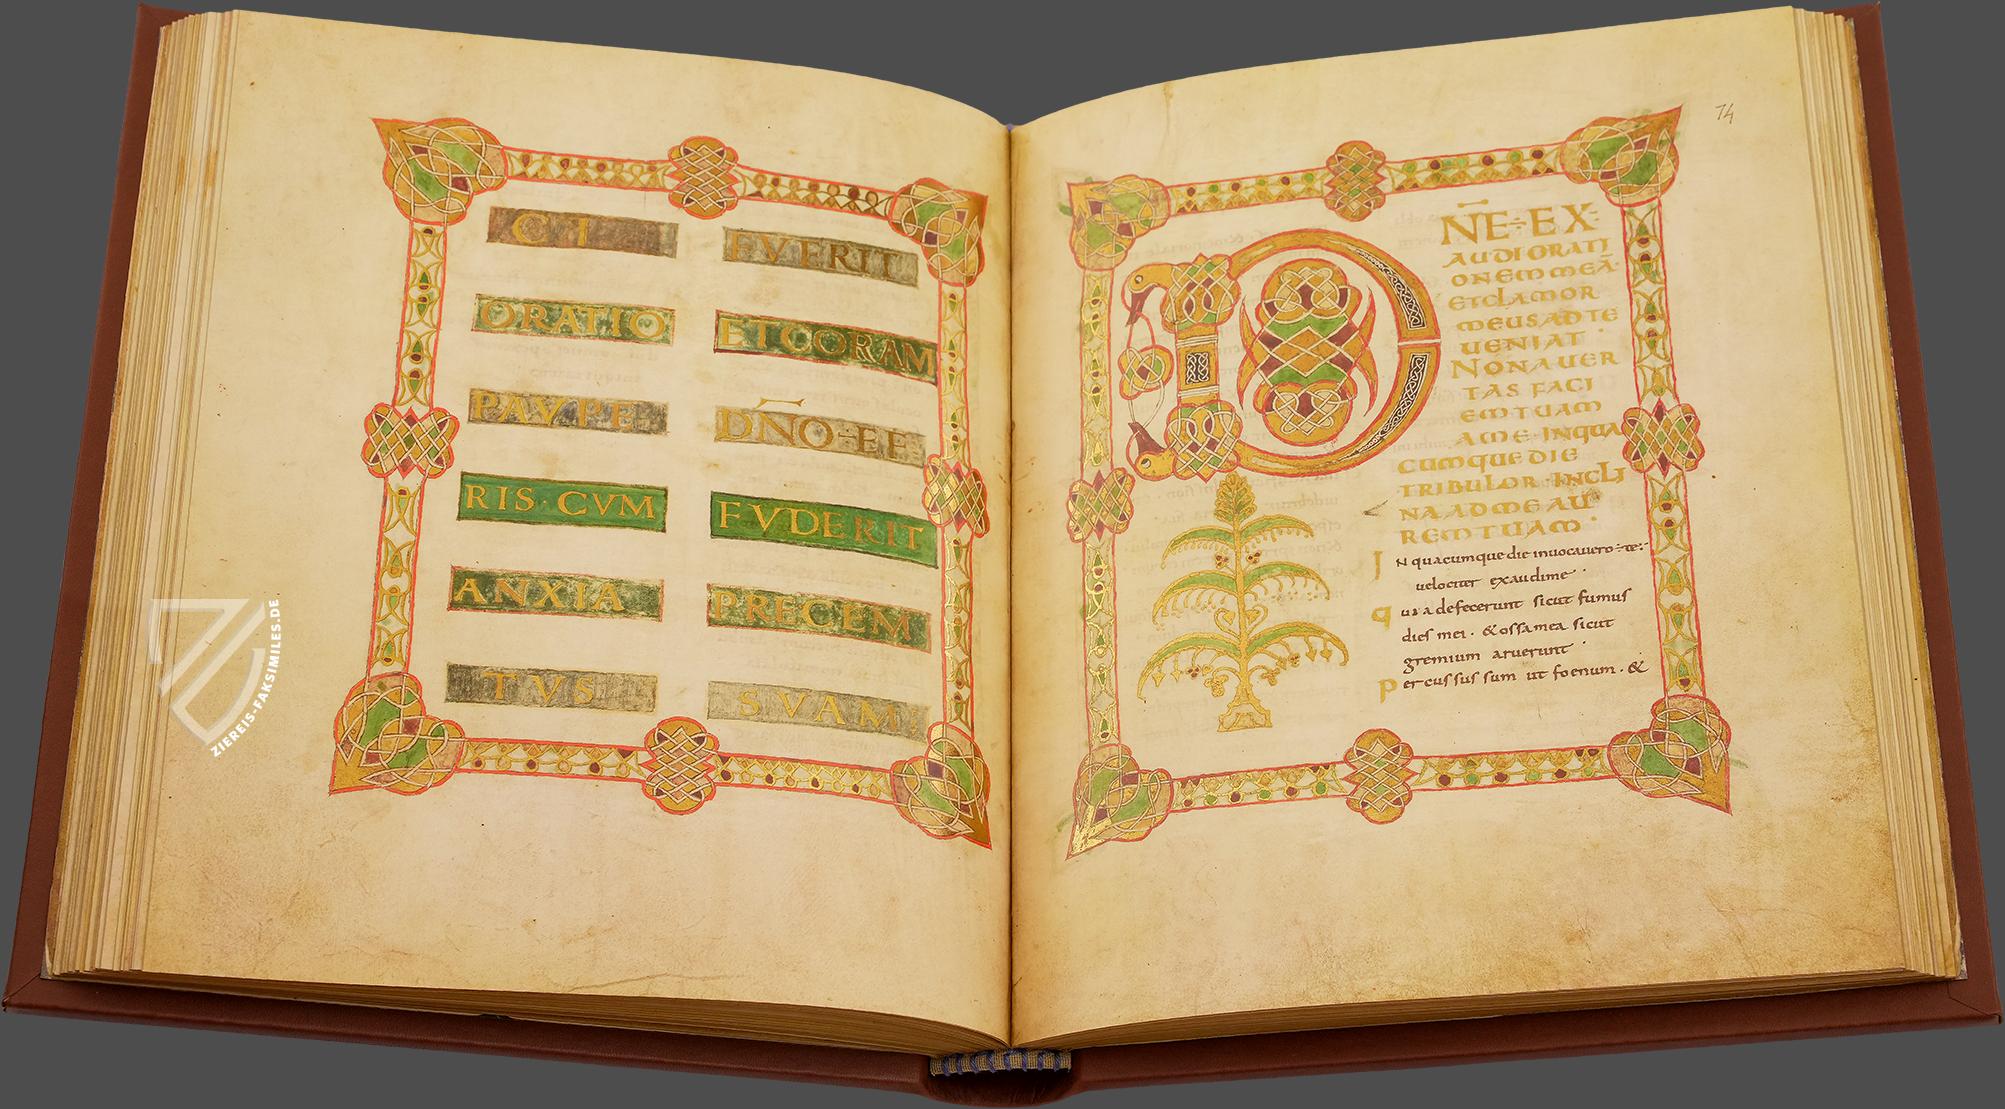 CI
ORATIO
PAVPE
RIS·CVM
ANXIA
TVS
FVERIT
ETCORAM
DN̄O÷EF
FVDERIT
PRECEM
SVAM:
74
D
N̄E÷EX:
AUDIORATI
ONEMMEĀ·
ETCLAMOR
MEUSADTE
UENIAT·
NONAUER
TAS FACI
EMTUAM
AME·INQUA
CUMQUEDIE
TRIBULOR INCLI
NAADMEAU
REMTUAM·
IN quacumque die inuocauero÷te:
uelociter exaudime·
quia defecerunt sicut fumus
dies mei· & ossa mea sicut
gremium aruerunt·
Percussus sum ut foenum·&
ZIEREIS-FAKSIMILES.DE